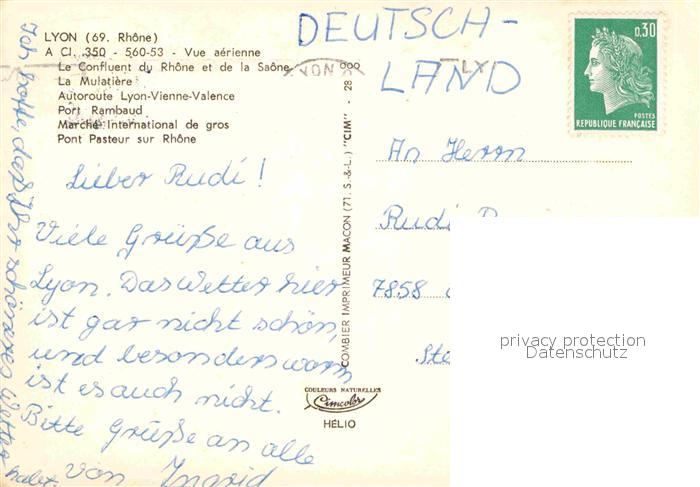 LYON (69. Rhône)
A Cl. 350 - 560-53 - Vue aérienne
Le Confluent du Rhône et de la Saône
La Mulatière
Autoroute Lyon-Vienne-Valence
Port Rambaud
Marché International de gros
Pont Pasteur sur Rhône
Lieber Rudi!
Viele Grüße aus
Lyon. Das Wetter hier
ist gar nicht schön,
und besonders warm
ist es auch nicht.
Bitte Grüße an alle
von Ingrid
Ich hoffe, daß Ihr schöneres Wetter
habt.
COMBIER IMPRIMEUR MACON (71. S.-&-L.) "CIM" - 28
COULEURS NATURELLES
Cimcolor
HÉLIO
DEUTSCH-
LAND
0,30
POSTES
REPUBLIQUE FRANÇAISE
An Herrn
Rudi
7858
privacy protection
Datenschutz